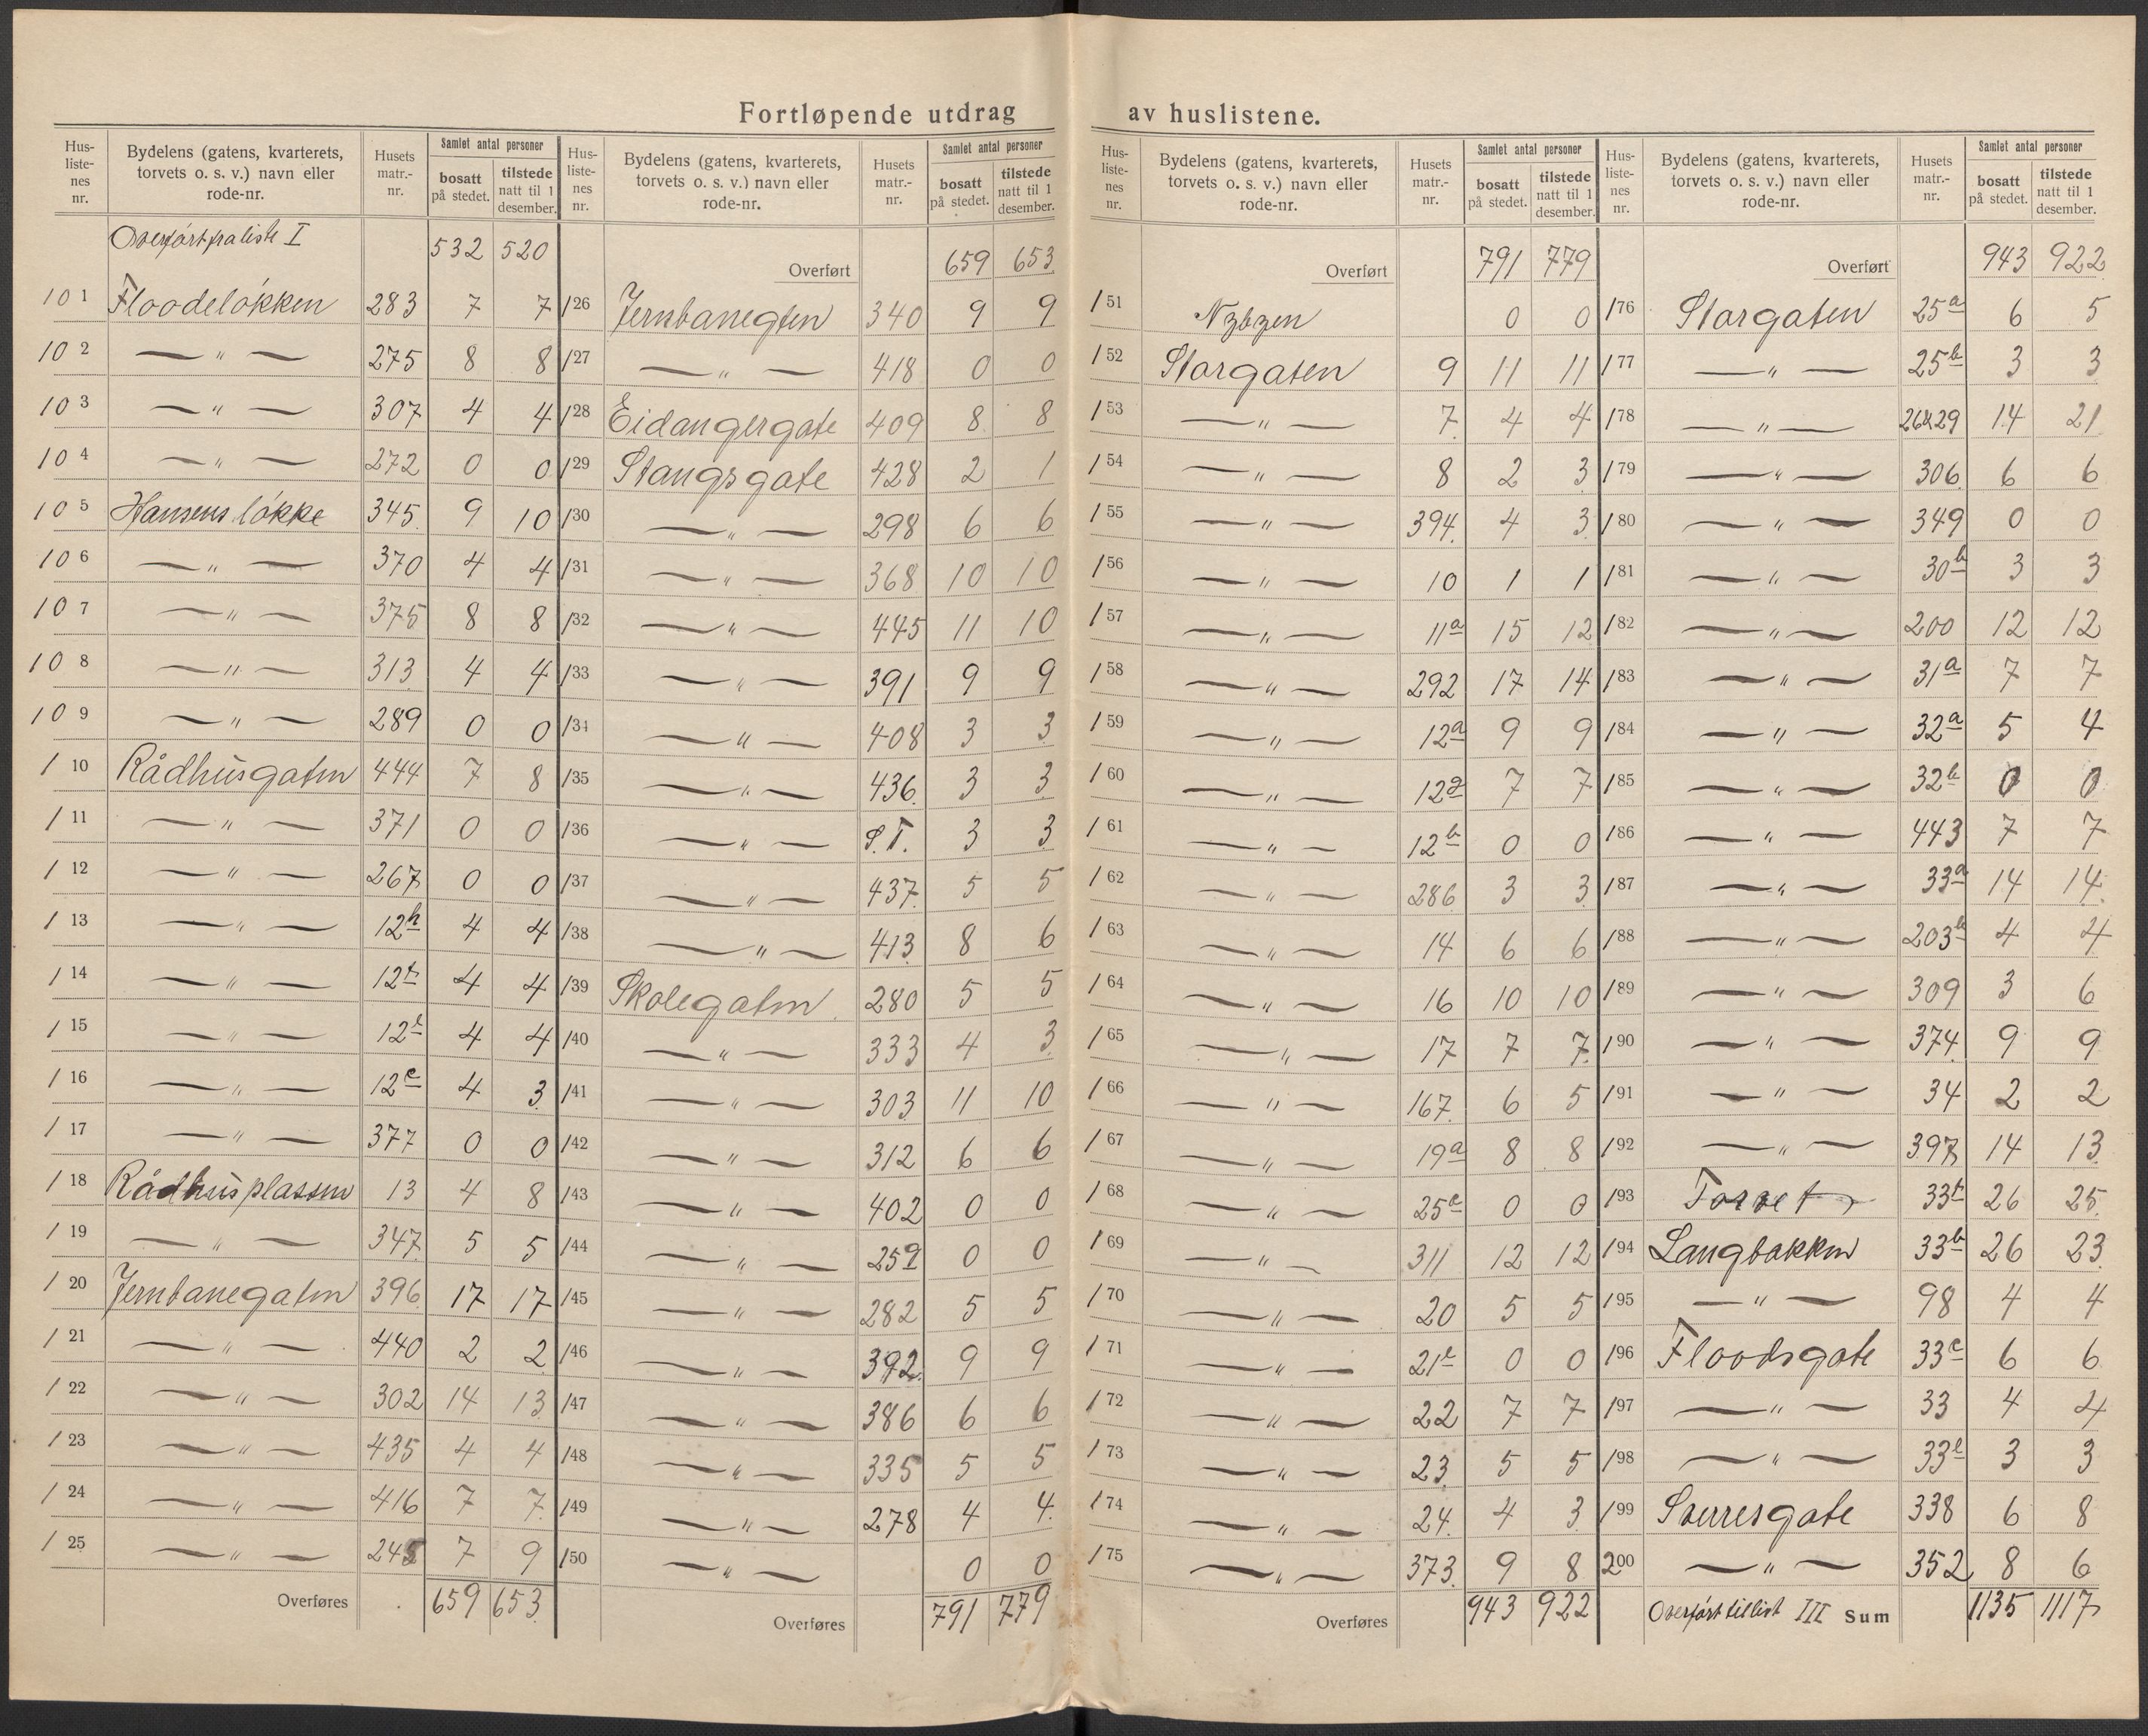 Fortløpende utdrag av huslistene.
Hus-listenes nr. | Bydelens (gatens, kvarterets, torvets o. s. v.) navn eller rode-nr. | Husets matr.-nr. | Samlet antal personer | bosatt på stedet. | tilstede natt til 1 desember.
Overført fra liste I 532 520
101 Floodeløkken 283 7 7
102 — " — 275 8 8
103 — " — 307 4 4
104 — " — 272 0 0
105 Hansens løkke 345 9 10
106 — " — 370 4 4
107 — " — 375 8 8
108 — " — 313 4 4
109 — " — 289 0 0
110 Rådhusgaten 444 7 8
111 — " — 371 0 0
112 — " — 267 0 0
113 — " — 12h 4 4
114 — " — 12f 4 4
115 — " — 12l 4 4
116 — " — 12e 4 3
117 — " — 377 0 0
118 Rådhusplassen 13 4 8
119 — " — 347 5 5
120 Jernbanegaten 396 17 17
121 — " — 440 2 2
122 — " — 302 14 13
123 — " — 435 4 4
124 — " — 416 7 7
125 — " — 245 7 9
Overføres 659 653
Hus-listenes nr. | Bydelens (gatens, kvarterets, torvets o. s. v.) navn eller rode-nr. | Husets matr.-nr. | Samlet antal personer | bosatt på stedet. | tilstede natt til 1 desember.
Overført 659 653
126 Jernbanegten 340 9 9
127 — " — 418 0 0
128 Eidangergate 409 8 8
129 Stangsgate 428 2 1
130 — " — 298 6 6
131 — " — 368 10 10
132 — " — 445 11 10
133 — " — 391 9 9
134 — " — 408 3 3
135 — " — 436 3 3
136 — " — S.T. 3 3
137 — " — 437 5 5
138 — " — 413 8 6
139 Skolegaten 280 5 5
140 — " — 333 4 3
141 — " — 303 11 10
142 — " — 312 6 6
143 — " — 402 0 0
144 — " — 259 0 0
145 — " — 282 5 5
146 — " — 392 9 9
147 — " — 386 6 6
148 — " — 335 5 5
149 — " — 278 4 4
150 — " — 0 0
Overføres 791 779
Hus-listenes nr. | Bydelens (gatens, kvarterets, torvets o. s. v.) navn eller rode-nr. | Husets matr.-nr. | Samlet antal personer | bosatt på stedet. | tilstede natt til 1 desember.
Overført 791 779
151 Nybyen 0 0
152 Storgaten 9 11 11
153 — " — 7 4 4
154 — " — 8 2 3
155 — " — 394 4 3
156 — " — 10 1 1
157 — " — 11a 15 12
158 — " — 292 17 14
159 — " — 12a 9 9
160 — " — 12g 7 7
161 — " — 12b 0 0
162 — " — 286 3 3
163 — " — 14 6 6
164 — " — 16 10 10
165 — " — 17 7 7
166 — " — 167 6 5
167 — " — 19a 8 8
168 — " — 25c 0 0
169 — " — 311 12 12
170 — " — 20 5 5
171 — " — 21c 0 0
172 — " — 22 7 7
173 — " — 23 5 5
174 — " — 24 4 3
175 — " — 373 9 8
Overføres 943 922
Hus-listenes nr. | Bydelens (gatens, kvarterets, torvets o. s. v.) navn eller rode-nr. | Husets matr.-nr. | Samlet antal personer | bosatt på stedet. | tilstede natt til 1 desember.
Overført 943 922
176 Storgaten 25a 6 5
177 — " — 25b 3 3
178 — " — 26&29 14 21
179 — " — 306 6 6
180 — " — 349 0 0
181 — " — 30b 3 3
182 — " — 200 12 12
183 — " — 31a 7 7
184 — " — 32a 5 4
185 — " — 32b 0 0
186 — " — 443 7 7
187 — " — 33a 14 14
188 — " — 203b 4 4
189 — " — 309 3 6
190 — " — 374 9 9
191 — " — 34 2 2
192 — " — 397 14 13
193 Torvet 33f 26 25
194 Langbakken 33b 26 23
195 — " — 98 4 4
196 Floodsgate 33c 6 6
197 — " — 33 4 4
198 — " — 33l 3 3
199 Sverresgate 338 6 8
200 — " — 352 8 6
Overført til list III Sum 1135 1117